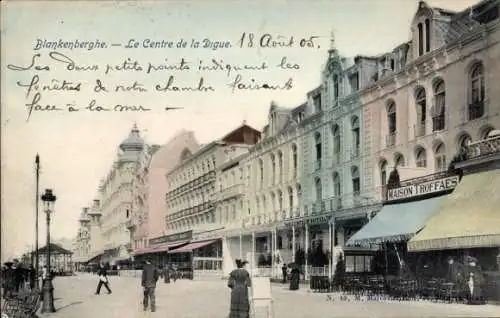 Blankenberghe. — Le Centre de la Digue. 18 Août 05.
Les deux petits points indiquent les
fenêtres de notre chambre faisant
face à la mer —
MAISON TROFFAES
HOTEL